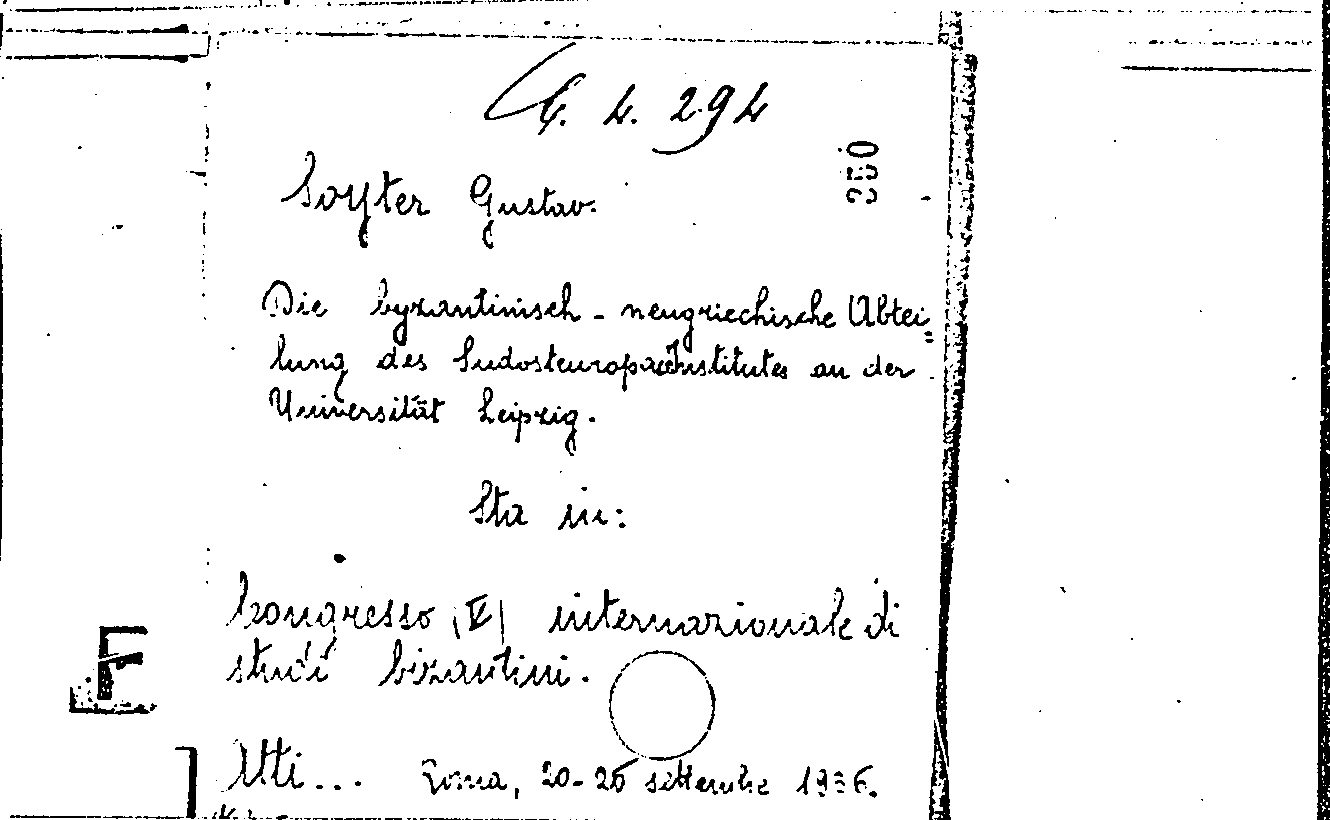 G. 4. 294
350
Soyter Gustav.
Die byzantinisch - neugriechische Abtei
lung des Sudosteuropaeinstitutes an der
Universität Leipzig.
Sta in:
Kongresso (V) internazionale di
studi bizantini.
Atti... Roma, 20-26 settembre 1936.